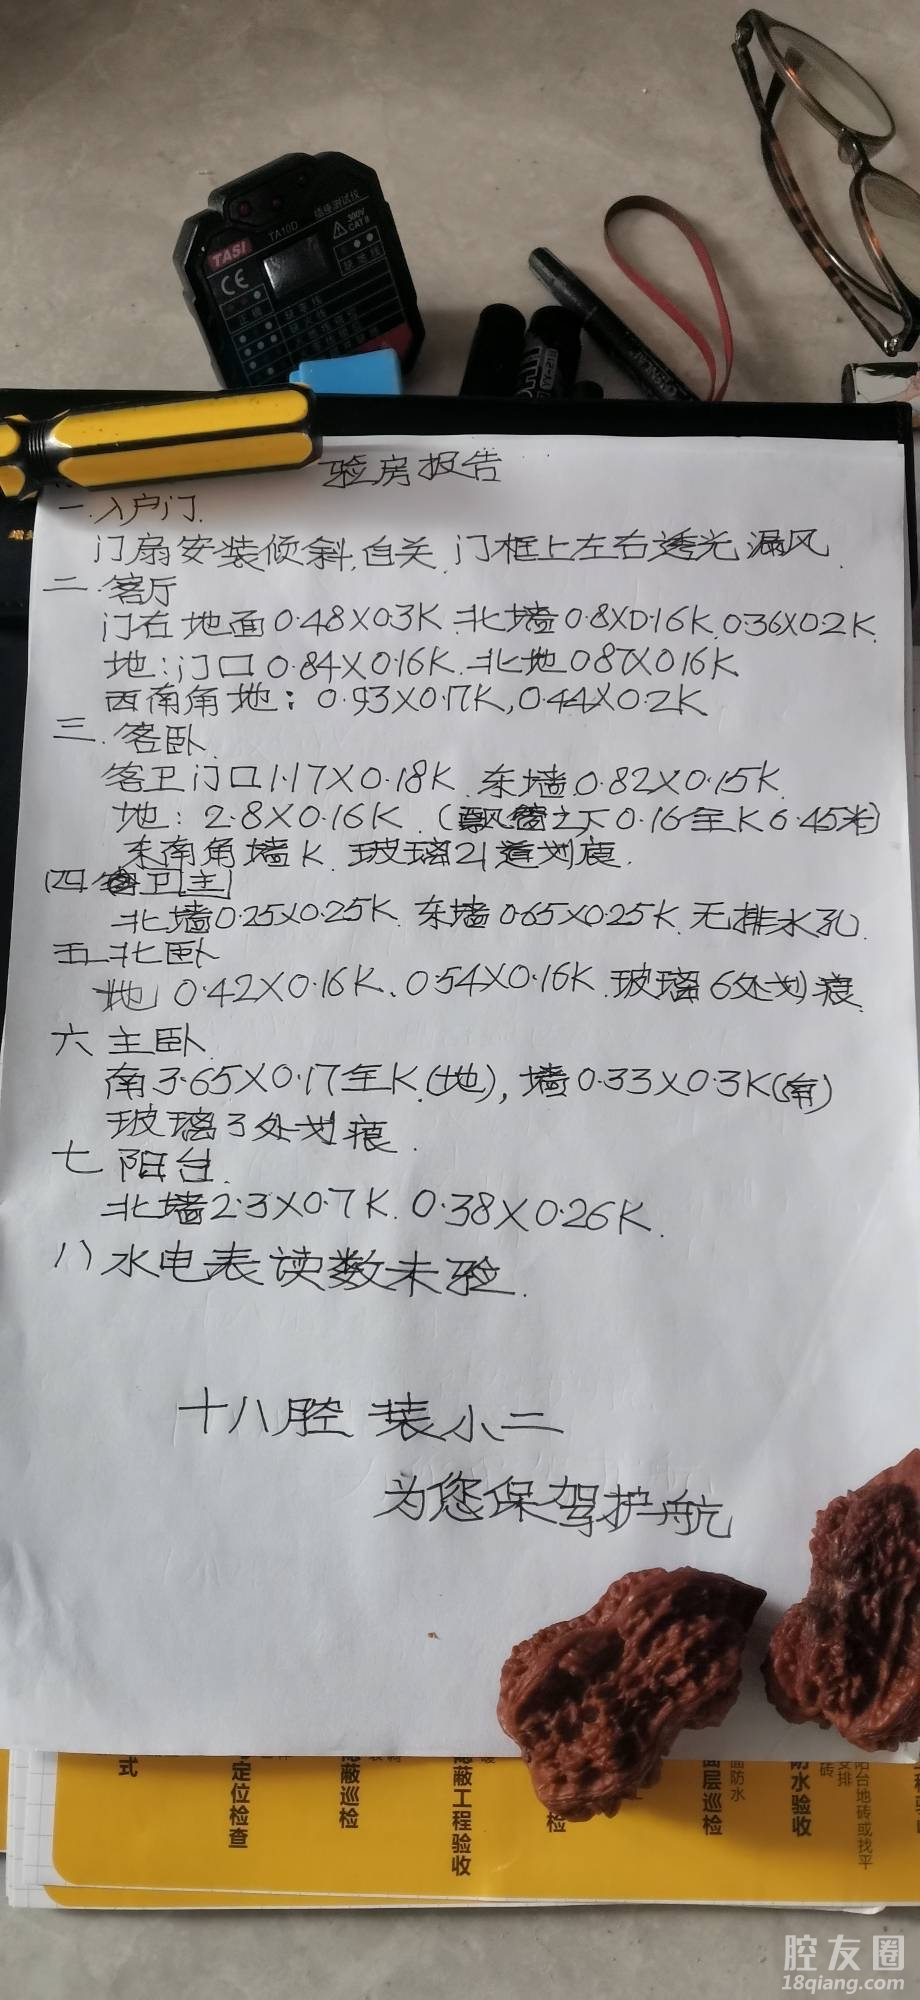 TASI
TA10D
CE
300V
CAT II
验房报告
一.入户门.
门扇安装倾斜.自关.门框上左右透光.漏风.
二.客厅
门右地面0.48X0.3K.北墙0.8X0.16K.0.36X0.2K.
地:门口0.84X0.16K.北地0.87X0.16K
西南角地:0.93X0.17K,0.44X0.2K
三.客卧.
客卫门口1.17X0.18K.东墙0.82X0.15K.
地:2.8X0.16K.(飘窗之下0.16全K6.45米)
东南角墙K.玻璃21道划痕.
四.客卫[主]
北墙0.25X0.25K.东墙0.65X0.25K.无排水孔.
五.北卧
地0.42X0.16K、0.54X0.16K.玻璃6处划痕
六主卧.
南3.65X0.17全K.(地),墙0.33X0.3K(南)
玻璃3处划痕.
七阳台.
北墙2.3X0.7K.0.38X0.26K.
八水电表读数未验.
十八腔装小二
为您保驾护航
式
定位检查
隐蔽巡检
隐蔽工程验收
检
面层巡检
面防水
防水验收
安排
阳台地砖或找平
砖
腔友圈
18qiang.com